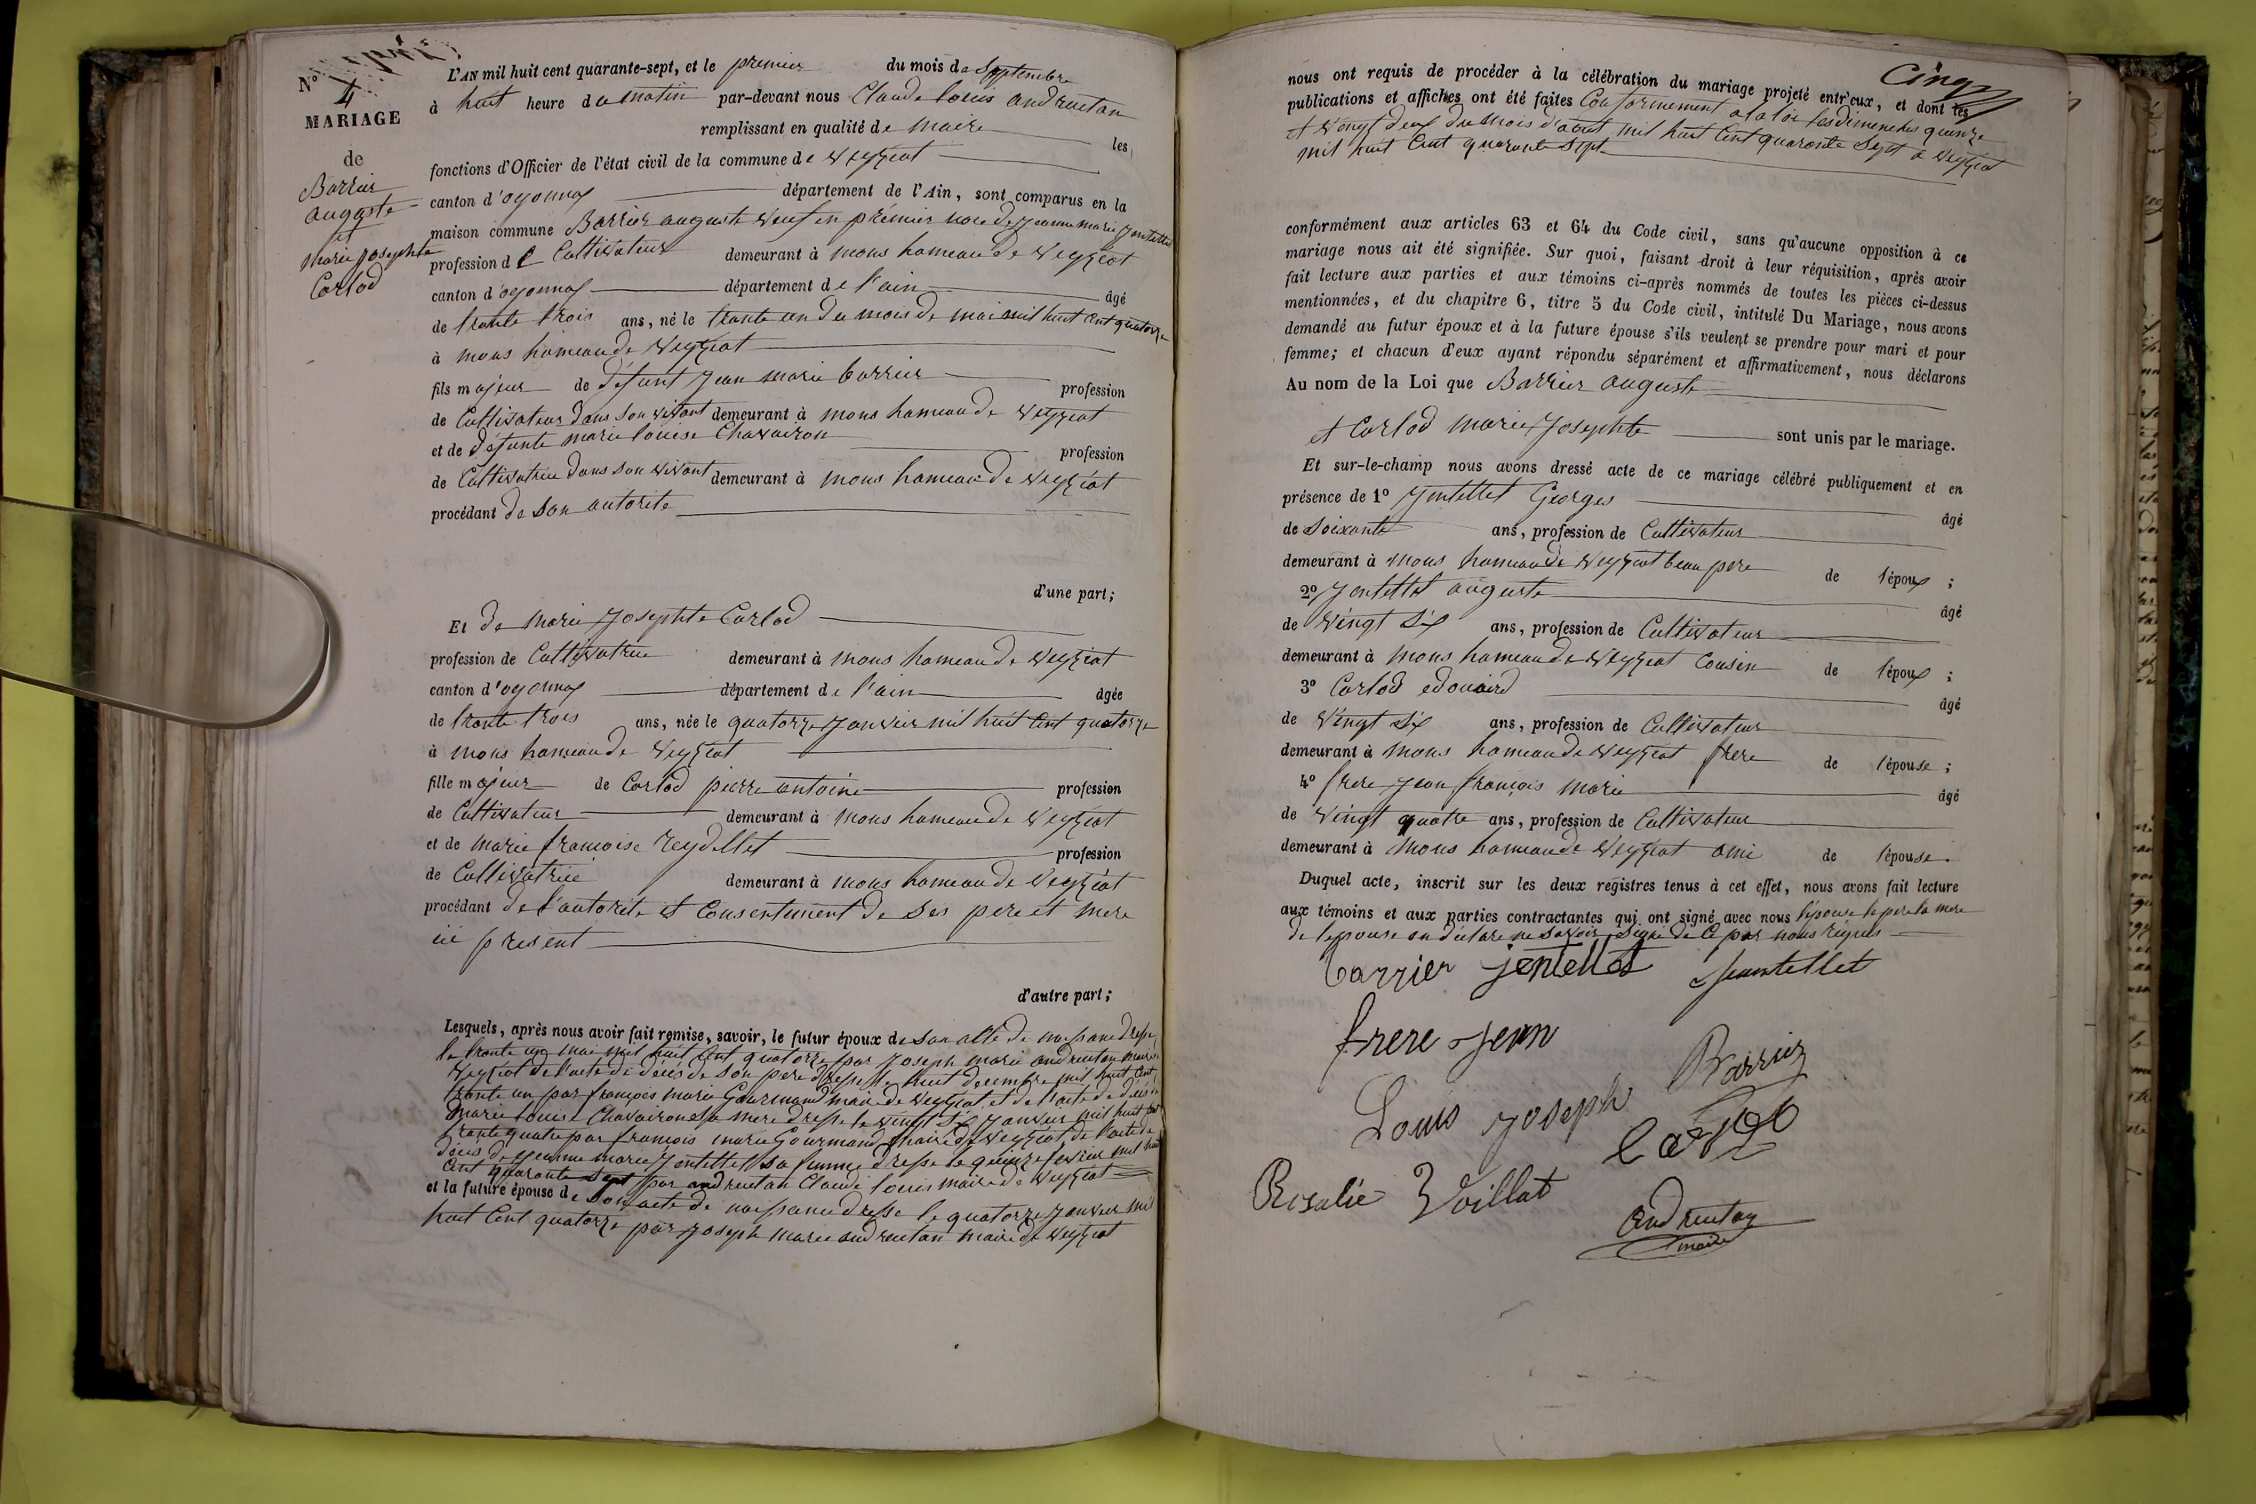 N° 4
MARIAGE
de
Barrier
auguste
et
marie josephte
Carlod
L'AN mil huit cent quarante-sept, et le premier du mois de Septembre
à huit heure du matin par-devant nous Claude louis andruetan
remplissant en qualité de maire les
fonctions d'Officier de l'état civil de la commune de veyziat
canton d'oyonnax département de l'Ain, sont comparus en la
maison commune Barrier auguste veuf en prémier noce de jeanne marie jentellet
profession de Cultivateur demeurant à mons hameau de veyziat
canton d'oyonnax département de l'ain âgé
de trante trois ans, né le trante un du mois de mai mil huit cent quatorze
à mons hameau de veyziat
fils majeur de défunt jean marie barrier profession
de Cultivateur dans son vivant demeurant à mons hameau de veyziat
et de défunte marie louise Chavairon profession
de Cultivatrice dans son vivant demeurant à mons hameau de veyziat
procédant de son autorite
d'une part;
Et de marie josephte Carlod
profession de Cultivatrice demeurant à mons hameau de veyziat
canton d'oyonnax département de l'ain âgée
de trante trois ans, née le quatorze janvier mil huit cent quatorze
à mons hameau de veyziat
fille majeur de Carlod pierre antoine profession
de Cultivateur demeurant à mons hameau de veyziat
et de marie francoise reydellet profession
de Cultivatrice demeurant à mons hameau de veyziat
procédant de l'autorite et consentement de ses pere et mere
ici présent
d'autre part;
Lesquels, après nous avoir fait remise, savoir, le futur époux de son acte de naissance dresse
le trante un mai mil huit cent quatorze par joseph marie andruetan maire
veyziat de l'acte de décès de son pere dresse le huit decembre mil huit cent
trante un par françois marie Gourmand maire de veyziat et de l'acte de décès
marie louise Chavairon sa mere dresse le vingt six janvier mil huit cent
trante quatre par francois marie Gourmand maire de veyziat de l'acte de
décès de jeanne marie jentellet sa femme dresse le quinze fevrier mil huit
cent quarante sept par andruetan Claude louis maire de veyziat
et la future épouse de son acte de naissance dresse le quatorze janvier mil
huit cent quatorze par joseph marie andruetan maire de veyziat
Cinq
nous ont requis de procéder à la célébration du mariage projeté entr'eux, et dont les
publications et affiches ont été faites Conformement a la loi les dimenches quinze
et vingt deux du mois d'août mil huit cent quarante sept a veyziat
mil huit cent quarante sept
conformément aux articles 63 et 64 du Code civil, sans qu'aucune opposition à ce
mariage nous ait été signifiée. Sur quoi, faisant droit à leur réquisition, après avoir
fait lecture aux parties et aux témoins ci-après nommés de toutes les pièces ci-dessus
mentionnées, et du chapitre 6, titre 5 du Code civil, intitulé Du Mariage, nous avons
demandé au futur époux et à la future épouse s'ils veulent se prendre pour mari et pour
femme; et chacun d'eux ayant répondu séparément et affirmativement, nous déclarons
Au nom de la Loi que Barrier auguste
et Carlod marie josephte sont unis par le mariage.
Et sur-le-champ nous avons dressé acte de ce mariage célébré publiquement et en
présence de 1° jentellet Georges âgé
de soixante ans, profession de Cultivateur
demeurant à mons hameau de veyziat beau pere de l'époux;
2° jentellet auguste âgé
de vingt six ans, profession de Cultivateur
demeurant à mons hameau de veyziat Cousin de l'époux;
3° Carlod edouard âgé
de vingt six ans, profession de Cultivateur
demeurant à mons hameau de veyziat frere de l'épouse;
4° frere jean françois marie âgé
de vingt quatre ans, profession de Cultivateur
demeurant à mons hameau de veyziat ami de l'épouse.
Duquel acte, inscrit sur les deux registres tenus à cet effet, nous avons fait lecture
aux témoins et aux parties contractantes qui ont signé avec nous l'épouse le pere la mere
de l'epouse on déclare ne savoir signé de ce par nous réquis
barrier jentellet jeantellet
frere jean
Barrier
Louis joseph
Rosalie Voillat
andruetan
maire